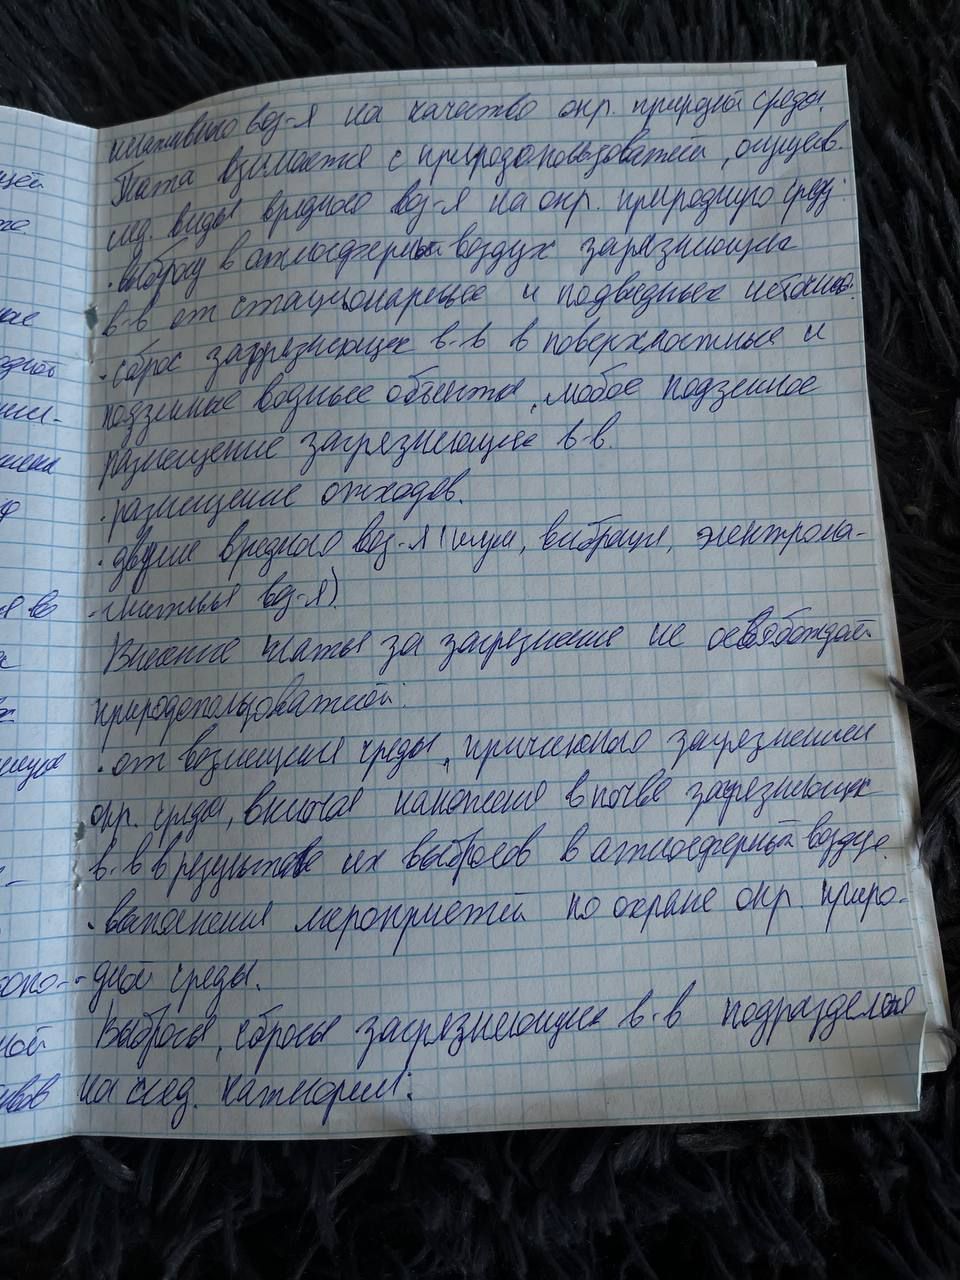 негативного воз-я на качество окр. природной среды.
Плата взимается с природопользователей, осущев.
след. виды вредного воз-я на окр. природную среду:
· выброс в атмосферный воздух загрязняющих
в-в от стационарных и подвижных источ.
· сброс загрязняющих в-в в поверхностные и
подземные водные объекты, любое подземное
размещение загрязняющих в-в.
· размещение отходов.
· другие вредного воз-я (шум, вибрация, электрома-
-гнитные воз-я)
Внесение платы за загрязнение не освобождает
природопользователей:
· от возмещения среды, причиненного загрязнением
окр. среды, включая накопление в почве загрязняющих
в-в в результате их выбросов в атмосферный воздух.
· выполнения мероприятий по охране окр. приро-
-дной среды.
Выбросы, сбросы загрязняющих в-в подразделяя
на след. категории: